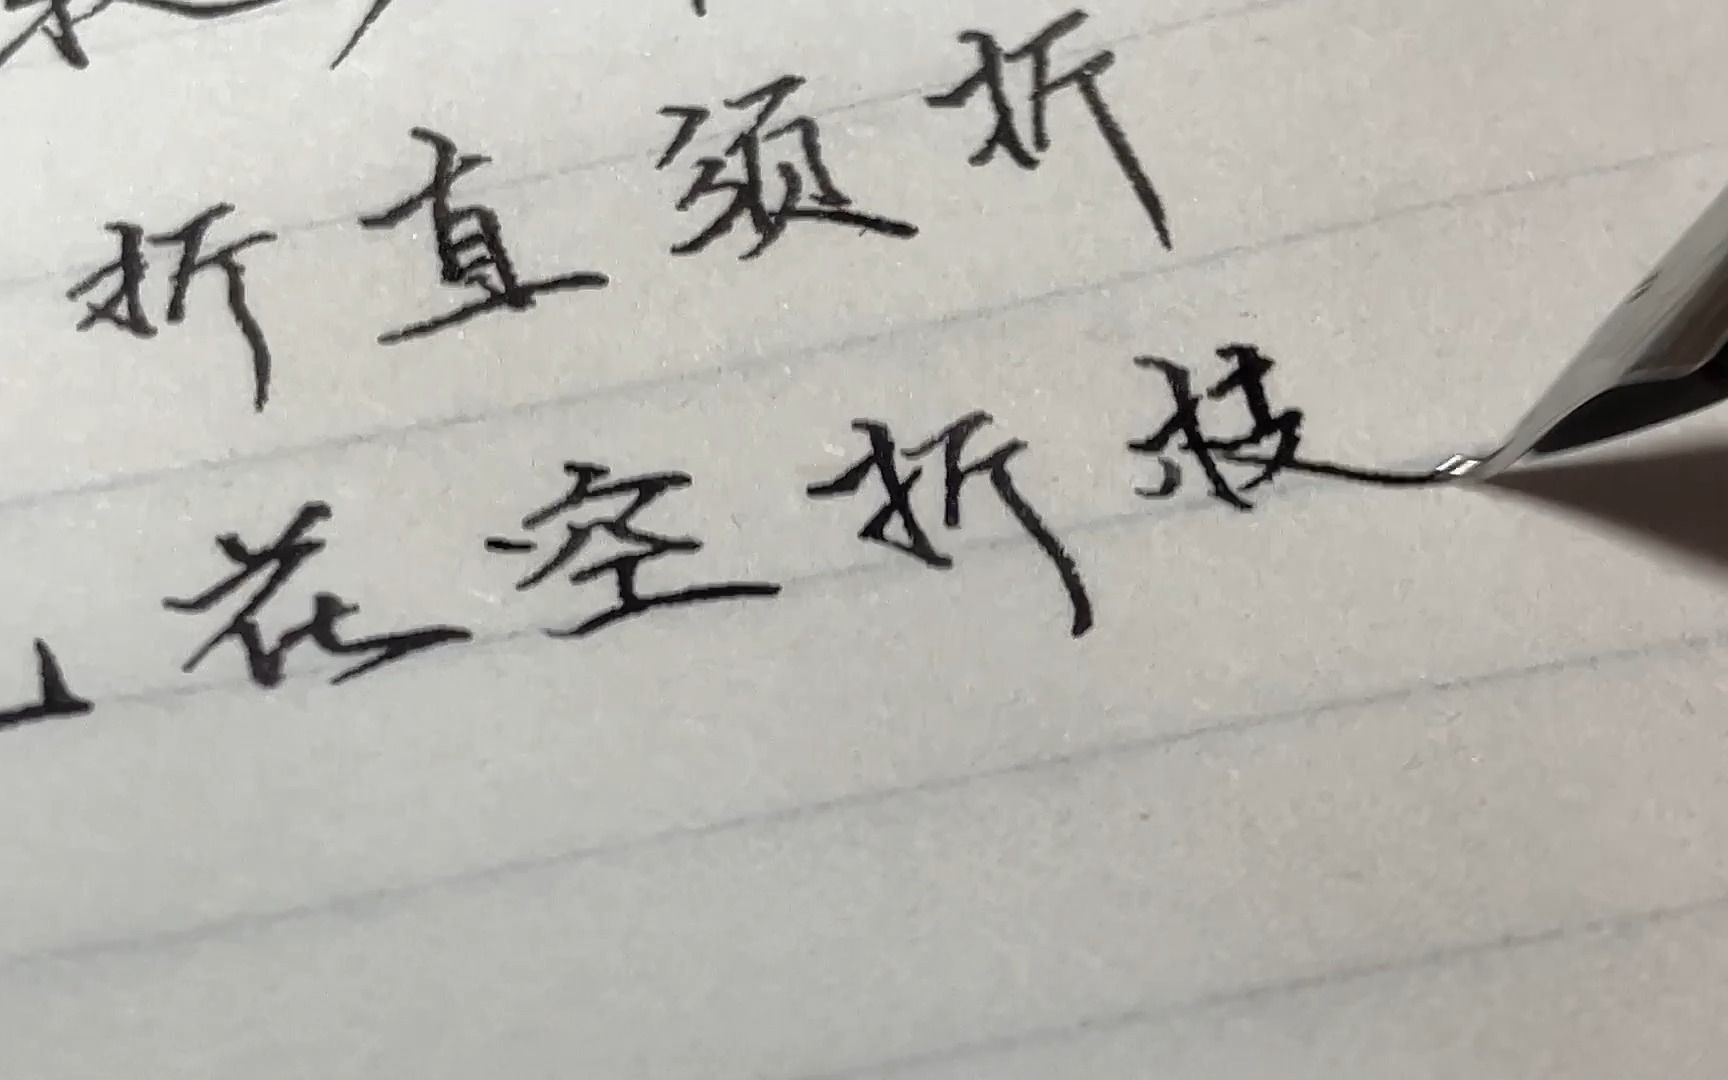 折直须折
花空折枝